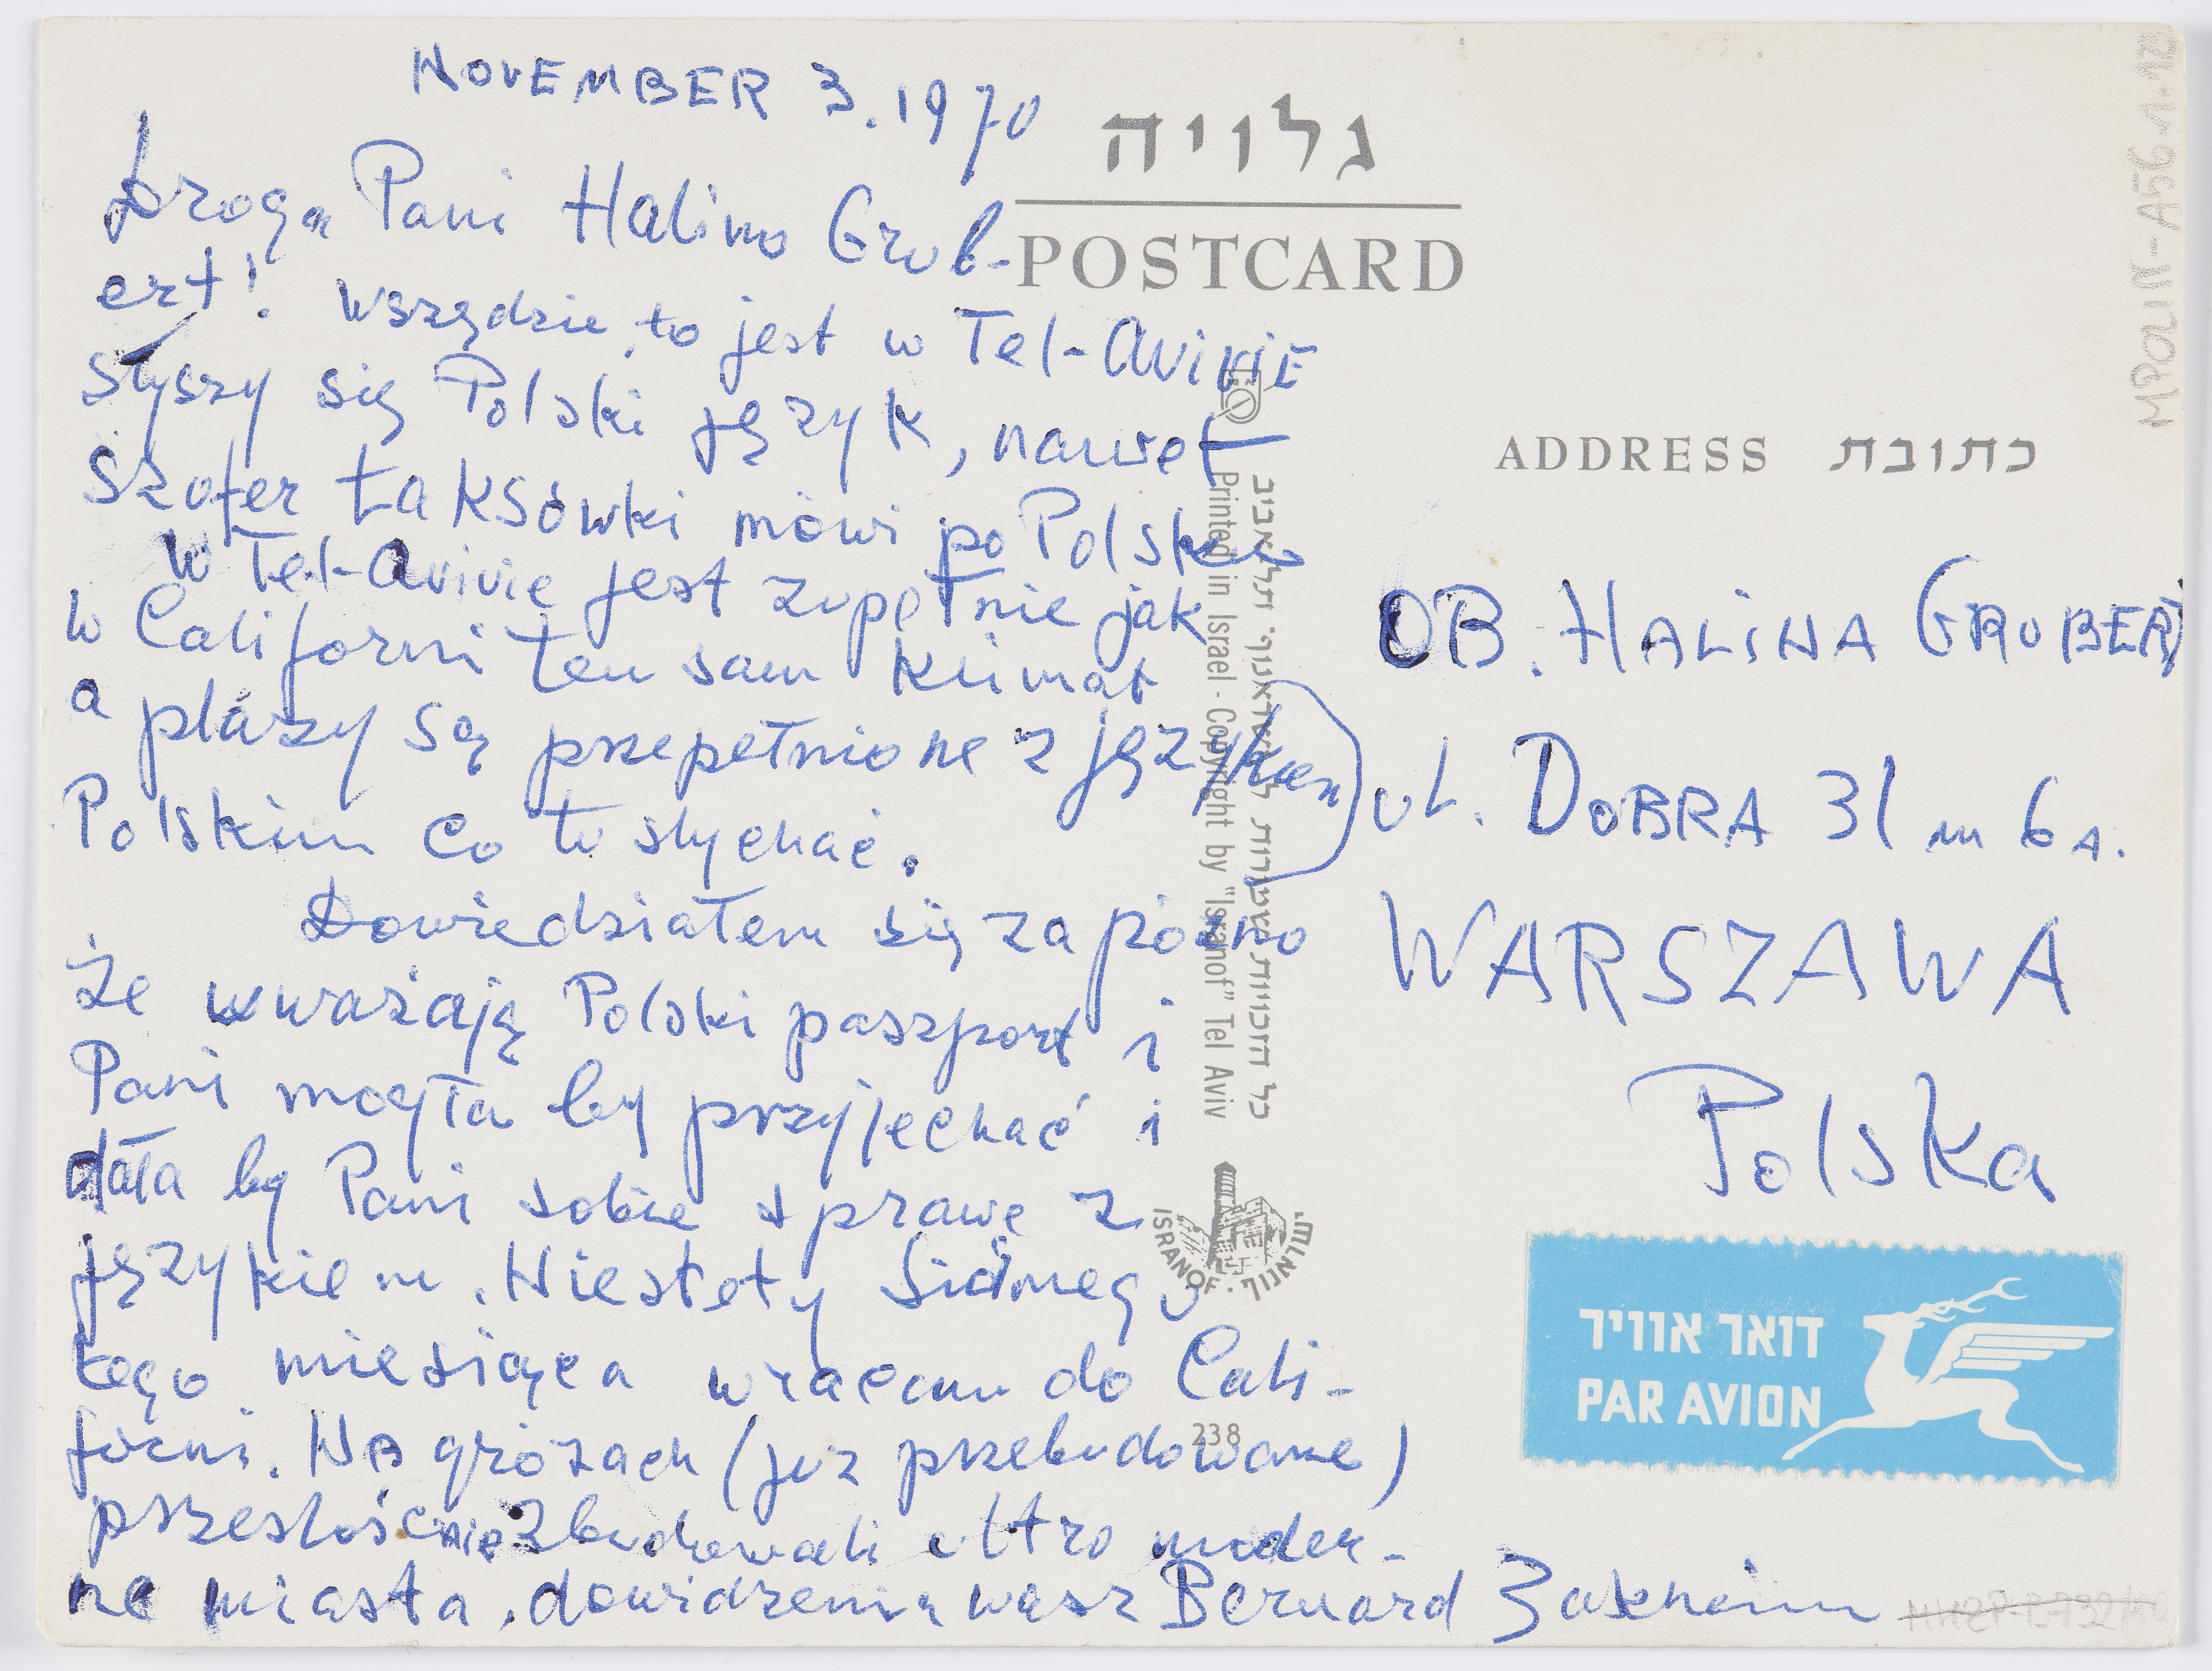 NOVEMBER 3. 1970
Droga Pani Halino Grub-
ert! Wszędzie to jest w Tel-AviviE
słyszy się Polski język, nawet
Szofer taksówki mówi po Polsku
W Tel-Avivie jest zupełnie jak
w Californi ten sam klimat
a plaży są przepełnione z językem
Polskim co tu słychać.
Dowiedziałem się za pózno
że uważają Polski paszport i
Pani mogła by przyjechać i
dała by Pani sobie sprawę z
językiem. Niestety Siódmego
tego miesiąca wracam do Cali-
forni. Na gruzach (już przebudowane)
prześlicznie zbudowali ultro moder-
ne miasta. dowidzenia wasz Bernard Zakheim
גלויה
POSTCARD
ADDRESS כתובת
OB. HALINA GRUBERT
ul. DOBRA 31 m 6 A.
WARSZAWA
Polska
דואר אוויר
PAR AVION
Printed in Israel - Copyright by "Isranof" Tel Aviv
כל הזכויות שמורות
ISRANOF
238
MPOLIN-A56.1.12